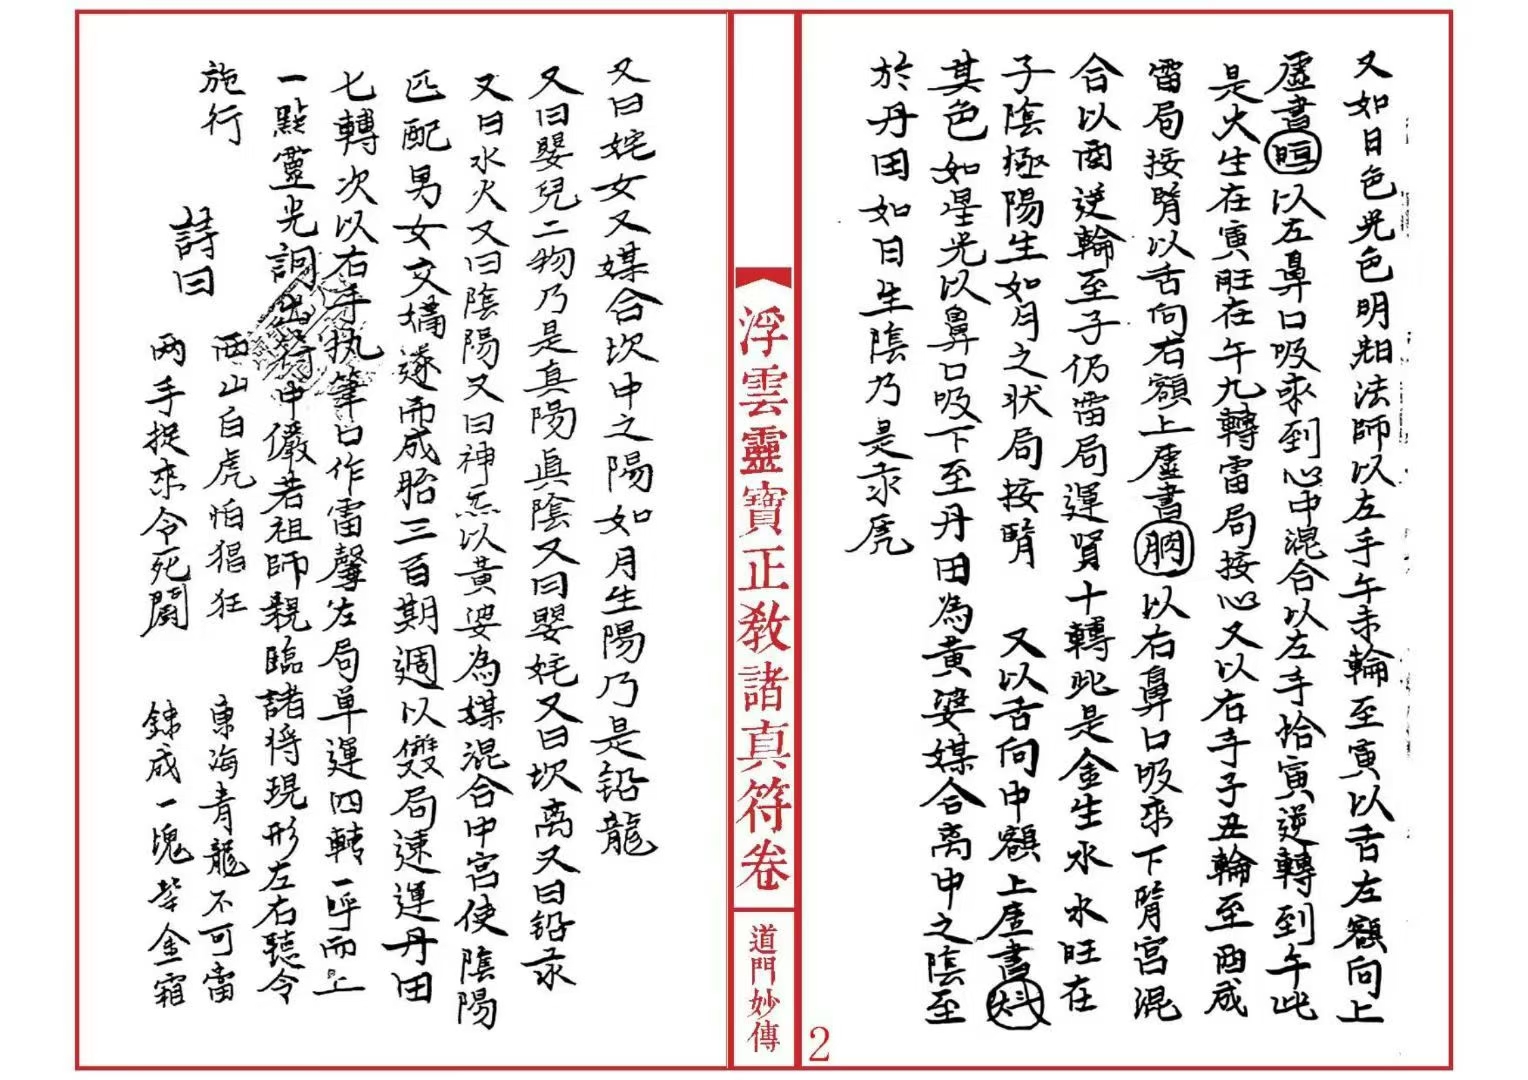 又如日色光色明朗法師以左手午未輪至寅以舌左額向上
虛書以左鼻口吸汞到心中混合以左手拾寅逆轉到午此
是火生在寅旺在午九轉雷局接心又以右手子丑輪至酉成
雷局接腎以舌向右額上虛書以右鼻口吸來下腎宮混
合以酉逆輪至子仍雷局運腎十轉此是金生水水旺在
子陰極陽生如月之狀局接腎 又以舌向中額上虛書
其色如星光以鼻口吸下至丹田為黃婆媒合离中之陰至
於丹田如日生陰乃是汞虎
浮雲靈寶正教諸真符卷
道門妙傳
2
又曰姹女又媒合坎中之陽如月生陽乃是铅龍
又曰嬰兒二物乃是真陽真陰又曰嬰姹又曰坎离又曰铅汞
又曰水火又曰陰陽又曰神炁以黃婆為媒混合中宮使陰陽
匹配男女交媾遂而成胎三百期週以雙局速運丹田
七轉次以右手执筆口作雷聲左局单運四轉一呼而上
一點靈光詞出符中儼若祖師親臨諸将現形左右聽令
施行
詩曰
西山白虎怕猖狂 東海青龍不可當
两手捉來令死鬪 鍊成一塊紫金霜